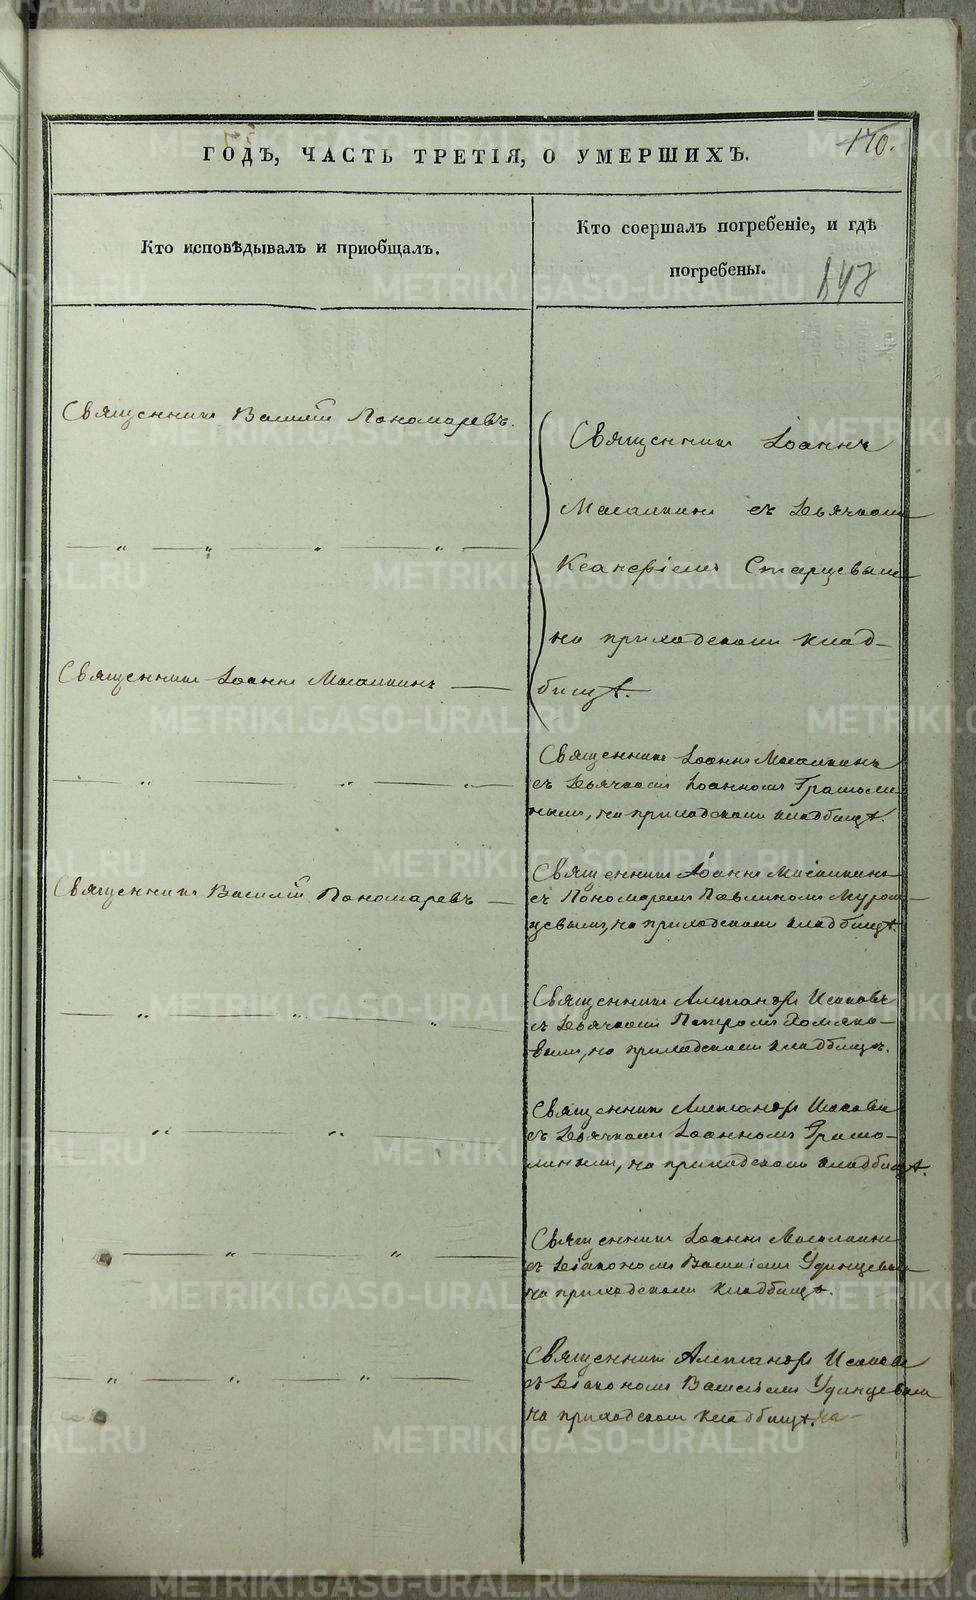 170.
ГОДЪ, ЧАСТЬ ТРЕТІЯ, О УМЕРШИХЪ.
Кто исповѣдывалъ и приобщалъ.
Кто соершалъ погребеніе, и гдѣ
погребены.
Священникъ Василій Пономаревъ.
Священникъ Іоаннъ
съ Дьячкомъ
Старцевымъ
на приходскомъ клад-
бищѣ.
Священникъ Іоаннъ Масалкинъ
Священникъ Іоаннъ Масалкинъ
съ Дьячкомъ Іоанномъ Грамоли-
нымъ, на приходскомъ кладбищѣ.
Священникъ Василій Пономаревъ
Священникъ Іоаннъ Масалкинъ
съ Пономаремъ Павлиномъ Муром-
цевымъ, на приходскомъ кладбищѣ.
Священникъ Александръ Исаковъ
съ Дьячкомъ Петромъ Хомяко-
вымъ, на приходскомъ кладбищѣ.
Священникъ Александръ Исаковъ
съ Дьячкомъ Іоанномъ Грамо-
линымъ, на приходскомъ кладбищѣ.
Священникъ Іоаннъ Масалкинъ
съ Діакономъ Василіемъ Удинцевымъ
на приходскомъ кладбищѣ.
Священникъ Александръ Исаковъ
съ Діакономъ Василіемъ Удинцевымъ
на приходскомъ кладбищѣ.
METRIKI.GASO-URAL.RU